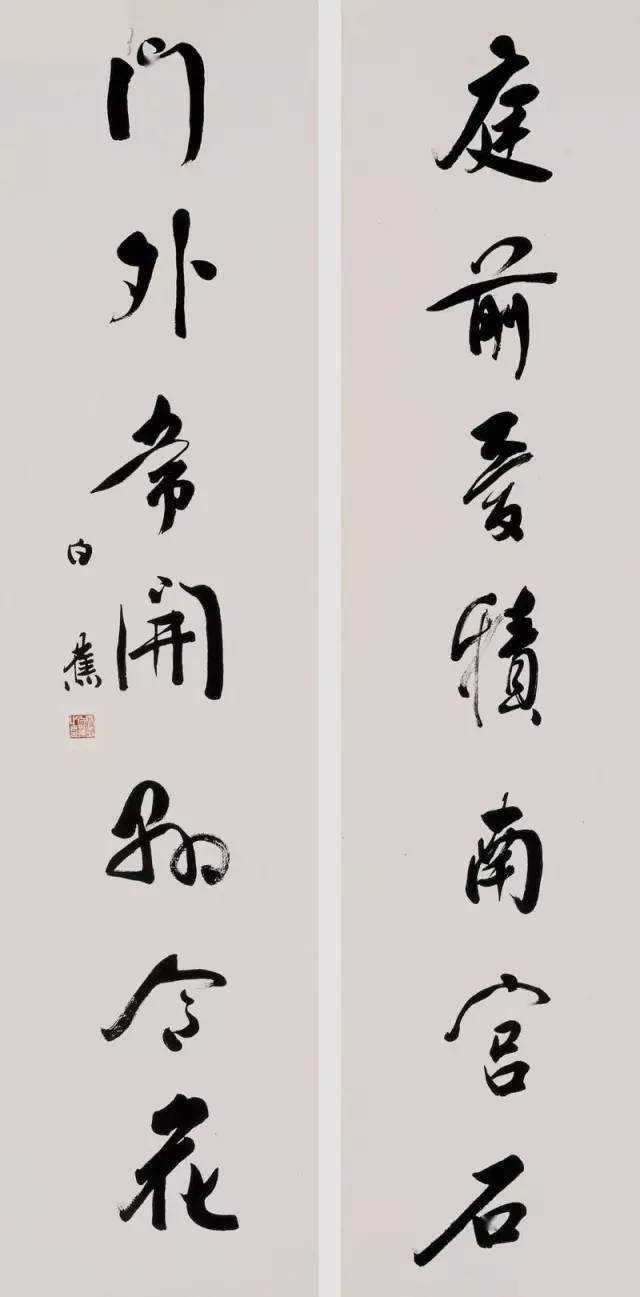 庭前愛積南宫石
門外常開縣令花
白蕉